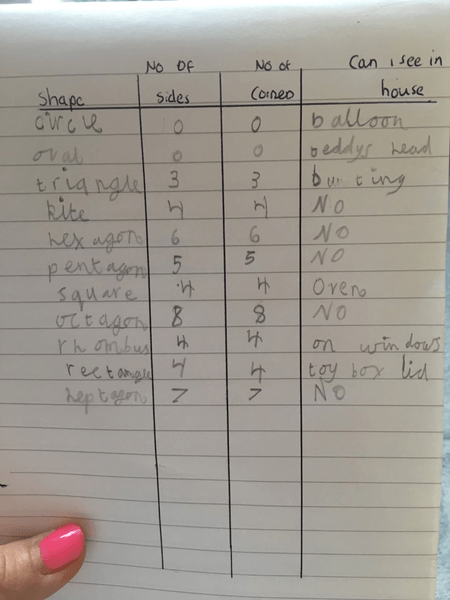 No Of No of Can i see in
Shape Sides Corners house
circle 0 0 balloon
oval 0 0 teddys head
triangle 3 3 bunting
kite 4 4 NO
hexagon 6 6 NO
pentagon 5 5 NO
square 4 4 Oven
octagon 8 8 NO
rhombus 4 4 on windows
rectangle 4 4 toy box lid
heptagon 7 7 NO